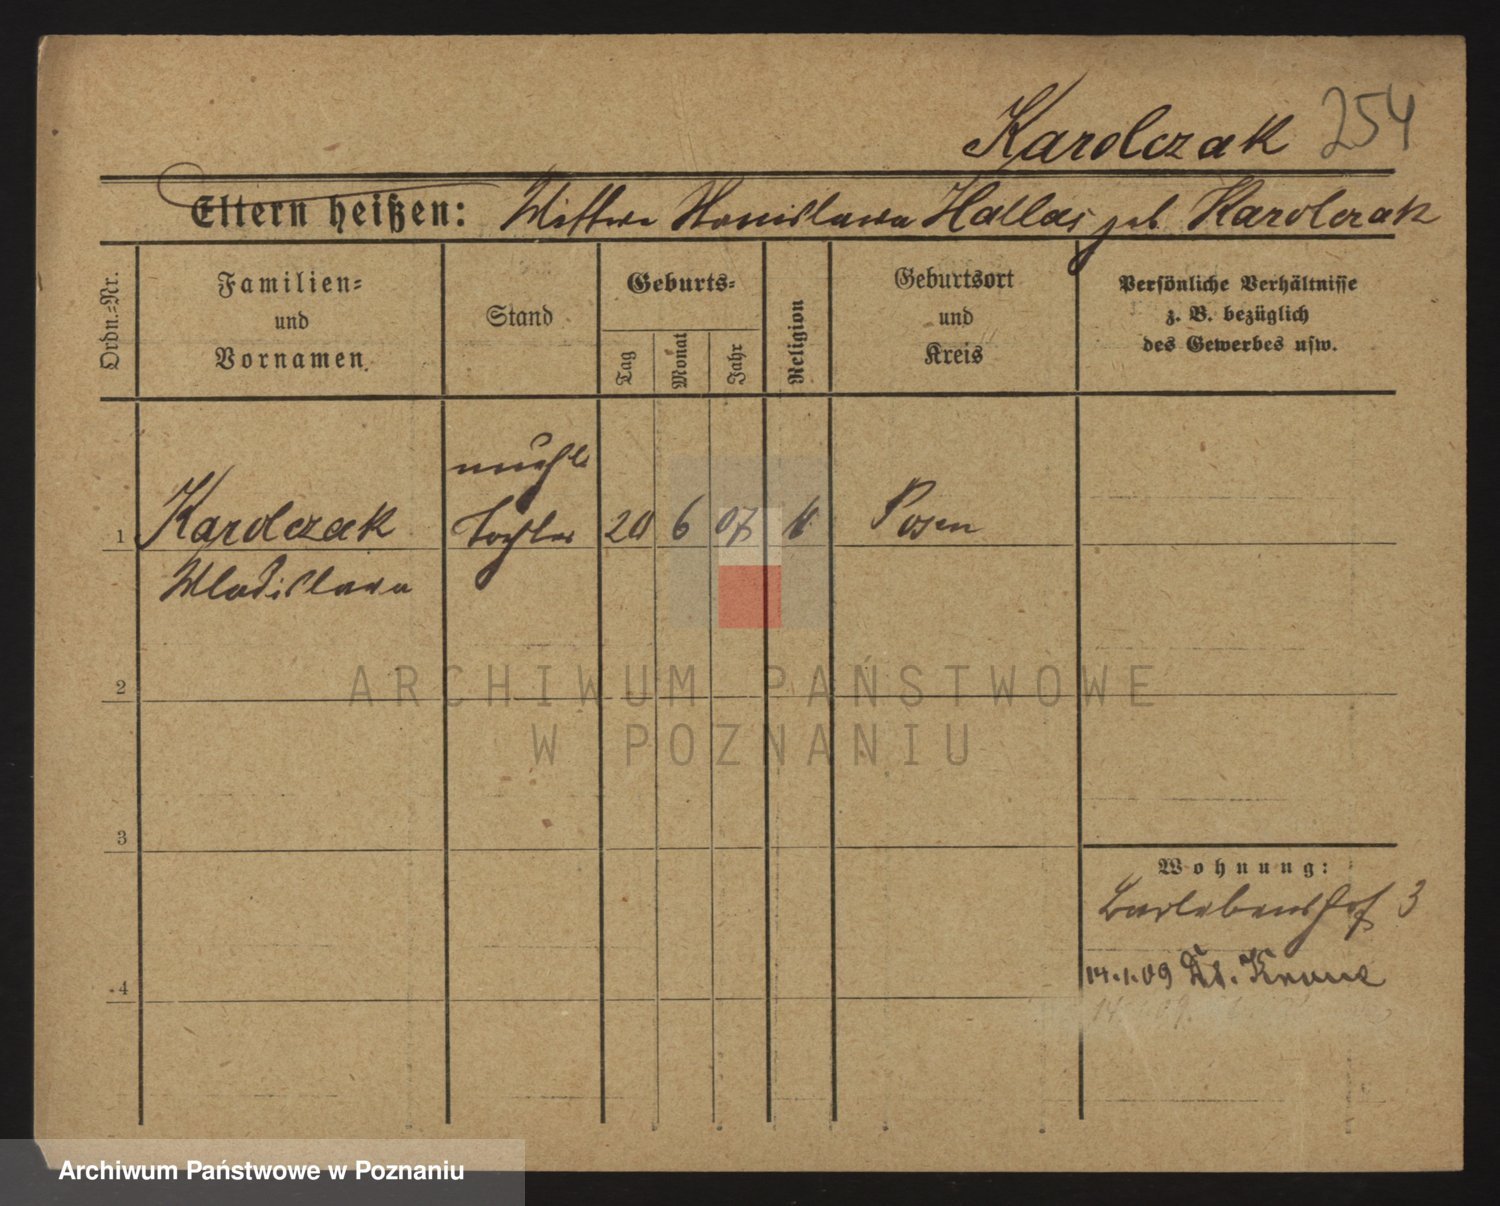 Karolczak 254
Eltern heißen: Wittwe Stanislawa Hallas geb. Karolczak
Ordn.=Nr.
Familien=
und
Vornamen.
Stand
Geburts=
Tag
Monat
Jahr
Religion
Geburtsort
und
Kreis
Persönliche Verhältnisse
z. B. bezüglich
des Gewerbes usw.
unehl
1 Karolczak Tochter 20 6 07 k Posen
Wladislawa
2
3
4
Wohnung:
Barlebenshof 3
14.1.09 Dt. Krone
ARCHIWUM PAŃSTWOWE
W POZNANIU
Archiwum Państwowe w Poznaniu